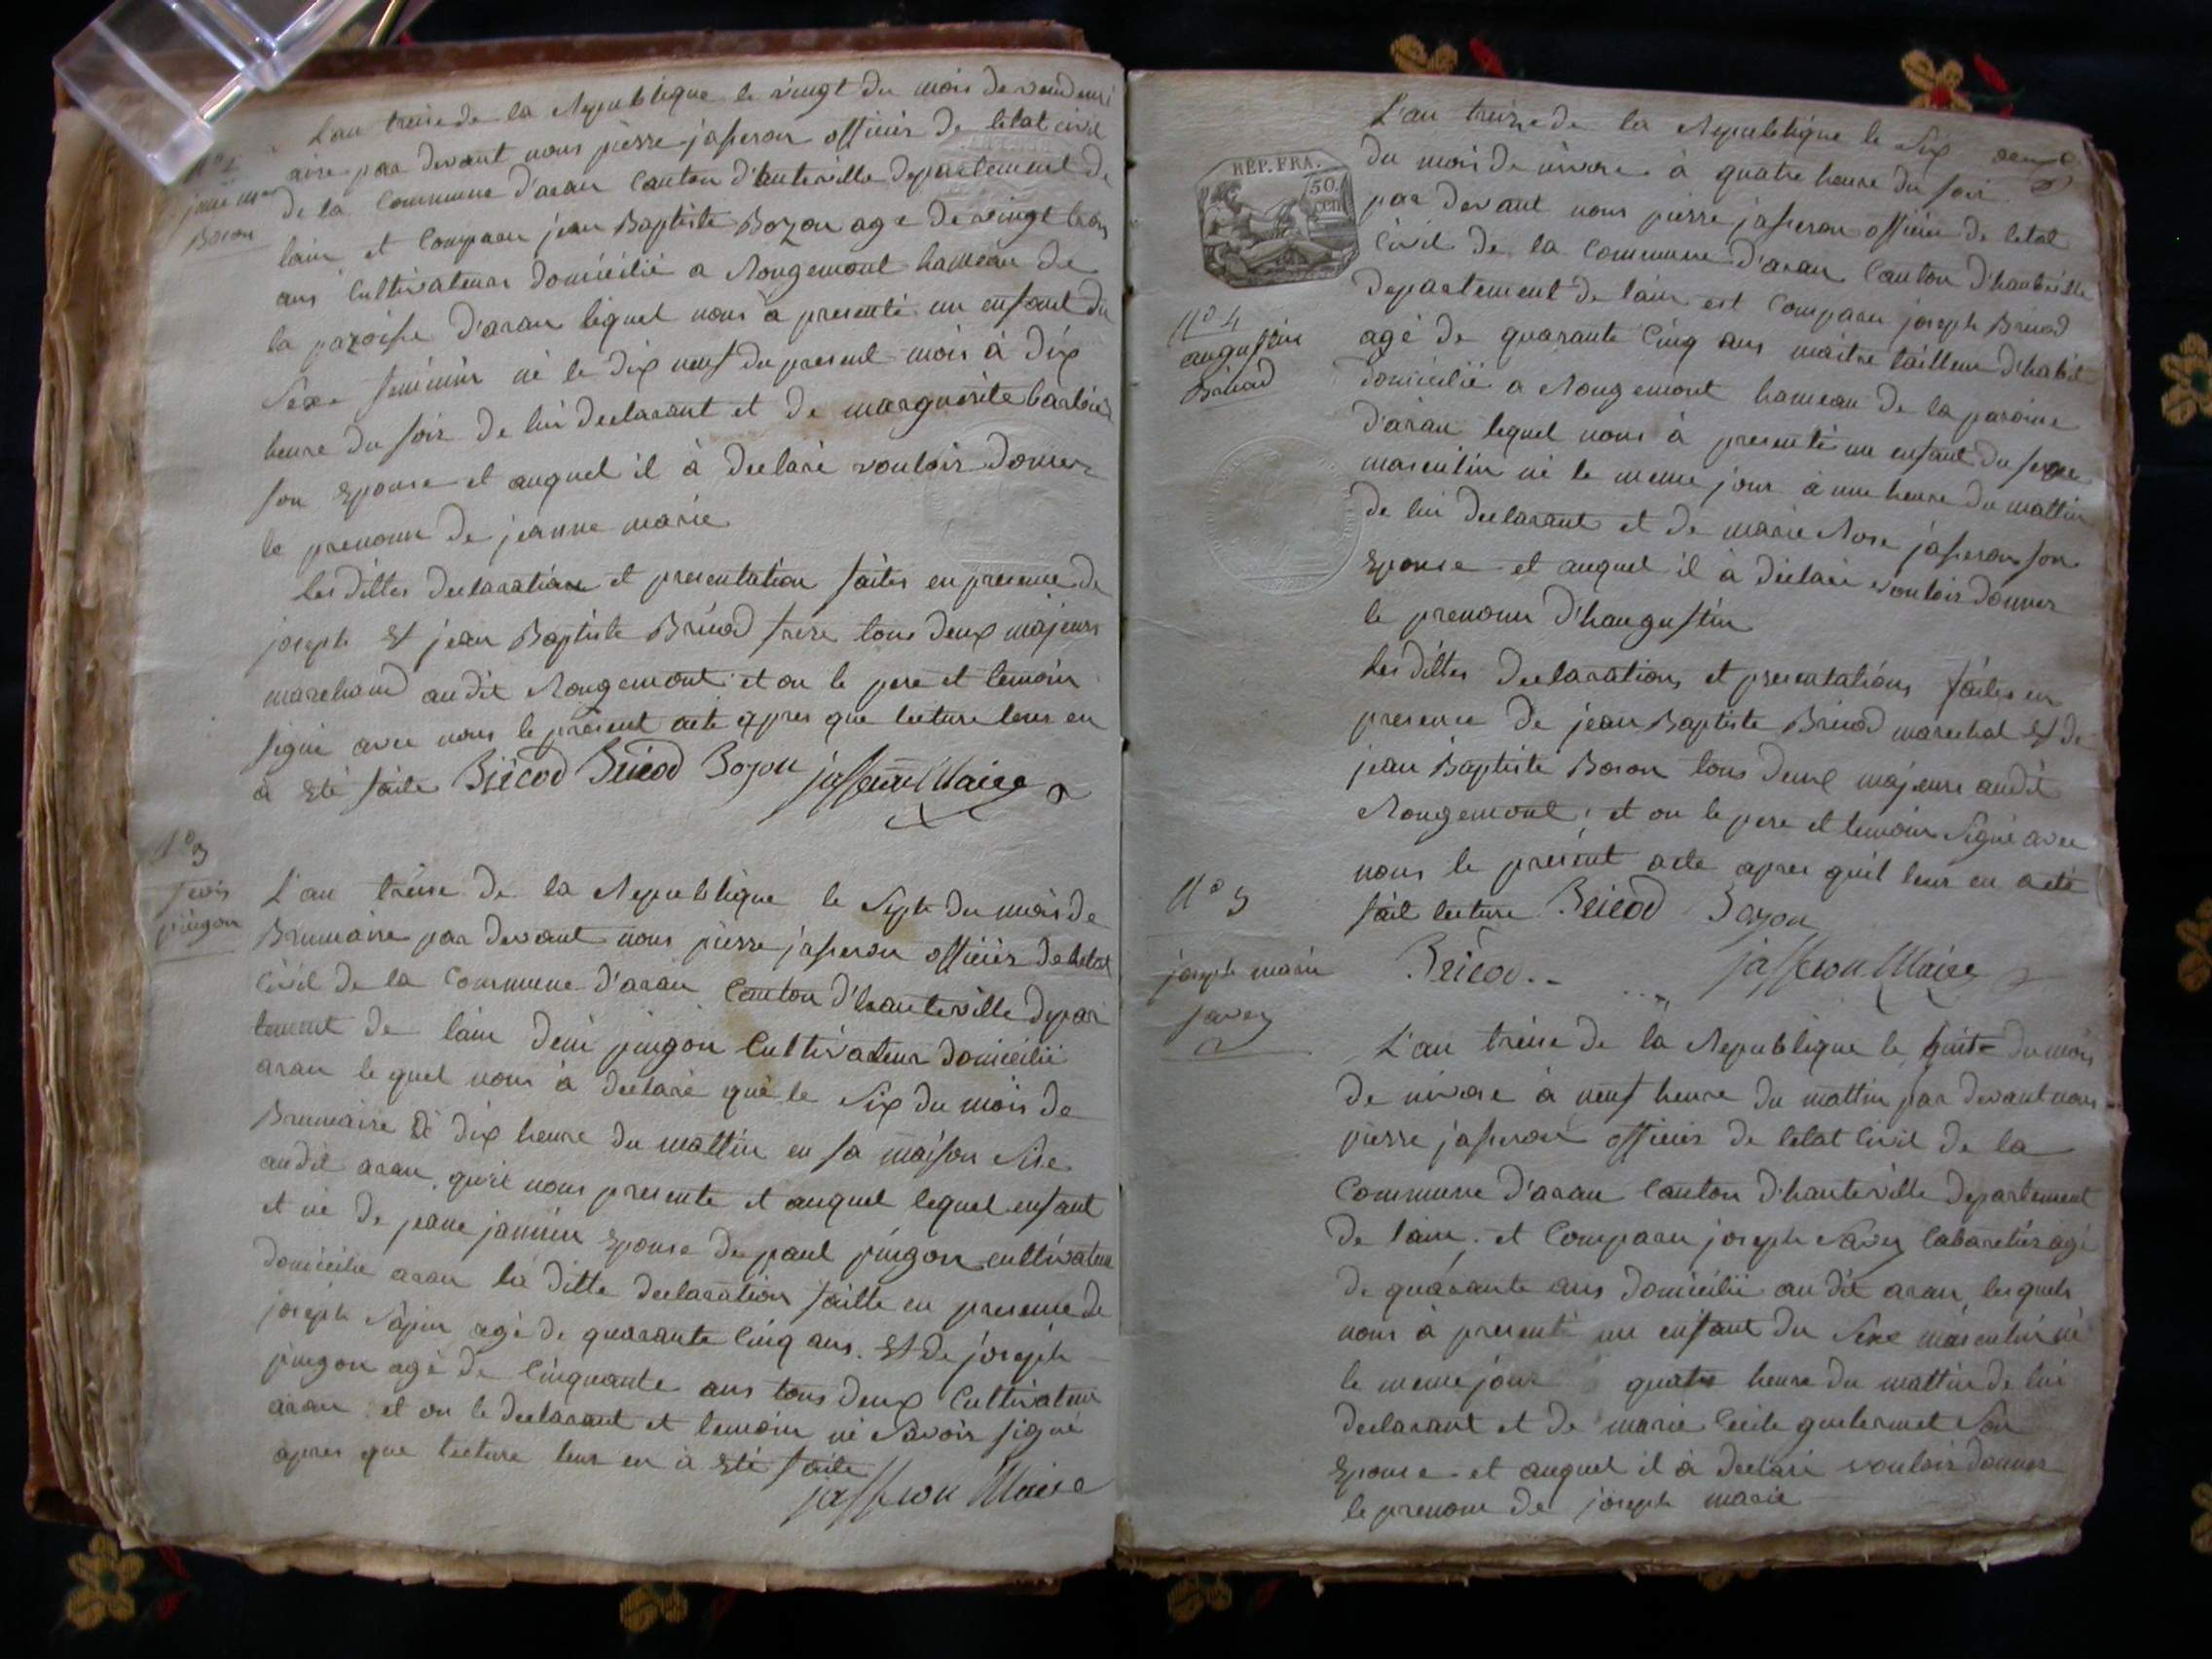 L'an treise de la Republique le vingt du mois de vendemi
aire par devant nous pierre jasseron officier de letat civil
de la Commune d'aran Canton d'hauteville departement de
lain et Comparu jean Baptiste Bozon age de vingt trois
ans Cultivateur domicilié a Rougemont hameau de
la paroisse d'aran lequel nous à presenté un enfant du
Sexe feminin né le dix neuf du present mois à dix
heure du soir de lui declarant et de marguerite barbier
son Epouse et auquel il à declaré vouloir donner
le prenom de jeanne marie
les dittes declaration et presentation faites en presence de
joseph Et jean Baptiste Bricod frere tous deux majeurs
marchand audit Rougemont et on le pere et temoin
signé avec nous le present acte apres que lecture leur en
à Eté faite Bricod Bricod Bozon jasseron Maire
Bozon
N° 3
pingon
L'an treise de la Republique le Sept du mois de
Brumaire par devant nous pierre jasseron officier de letat
Civil de la Commune d'aran Canton d'hauteville depar
tement de lain deni pingon Cultivateur domicilié
aran le quel nous à declaré que le Six du mois de
Brumaire à dix heure du mattin en sa maison Sise
audit aran, qu'il nous presente et auquel lequel enfant
et né de jeane jannin Epouse de paul pingon cultivateur
domicilie aran la ditte declaration faitte en presence de
joseph Sapin agé de quarante Cinq ans. Et de joseph
pingon agé de Cinquante ans tous deux Cultivateur
aran et on le declarant et temoin né Savoir signé
apres que lecture leur en à Eté faite
jasseron Maire
REP. FRA.
50
cen
L'an treize de la Republique le Six
du mois de nivose à quatre heure du soir
par devant nous pierre jasseron officier de letat
Civil de la Commune d'aran Canton d'hauteville
departement de lain est Comparu joseph Bricod
agé de quarante Cinq ans maitre tailleur d'habit
domicilié a Rougemont hameau de la paroisse
d'aran lequel nous à presenté un enfant du sexe
masculin né le meme jour à une heure du mattin
de lui declarant et de marie Rose jasseron son
Epouse et auquel il à declaré vouloir donner
le prenom d'haugustin
N° 4
augustin
Bricod
les dittes declarations et presentations faites en
presence de jean Baptiste Bricod marechal Et de
jean Baptiste Boson tous deux majeurs audit
Rougemont; et on le pere et temoin Signé avec
nous le present acte apres quil leur en a eté
fait lecture Bricod Bozon
Bricod jasseron Maire
N° 5
joseph marie
savey
L'an treise de la Republique le huit du mois
de nivose à neuf heure du mattin par devant nous
pierre jasseron officier de letat Civil de la
Commune d'aran Canton d'hauteville departement
de lain. et Comparu joseph Savey Cabaretier agé
de quarante ans domicilié audit aran, lesquels
nous à presenté un enfant du Sexe masculin né
le meme jour quatre heure du mattin de lui
declarant et de marie Cecile guillermet Son
Epouse et auquel il à declaré vouloir donner
le prenom de joseph marie